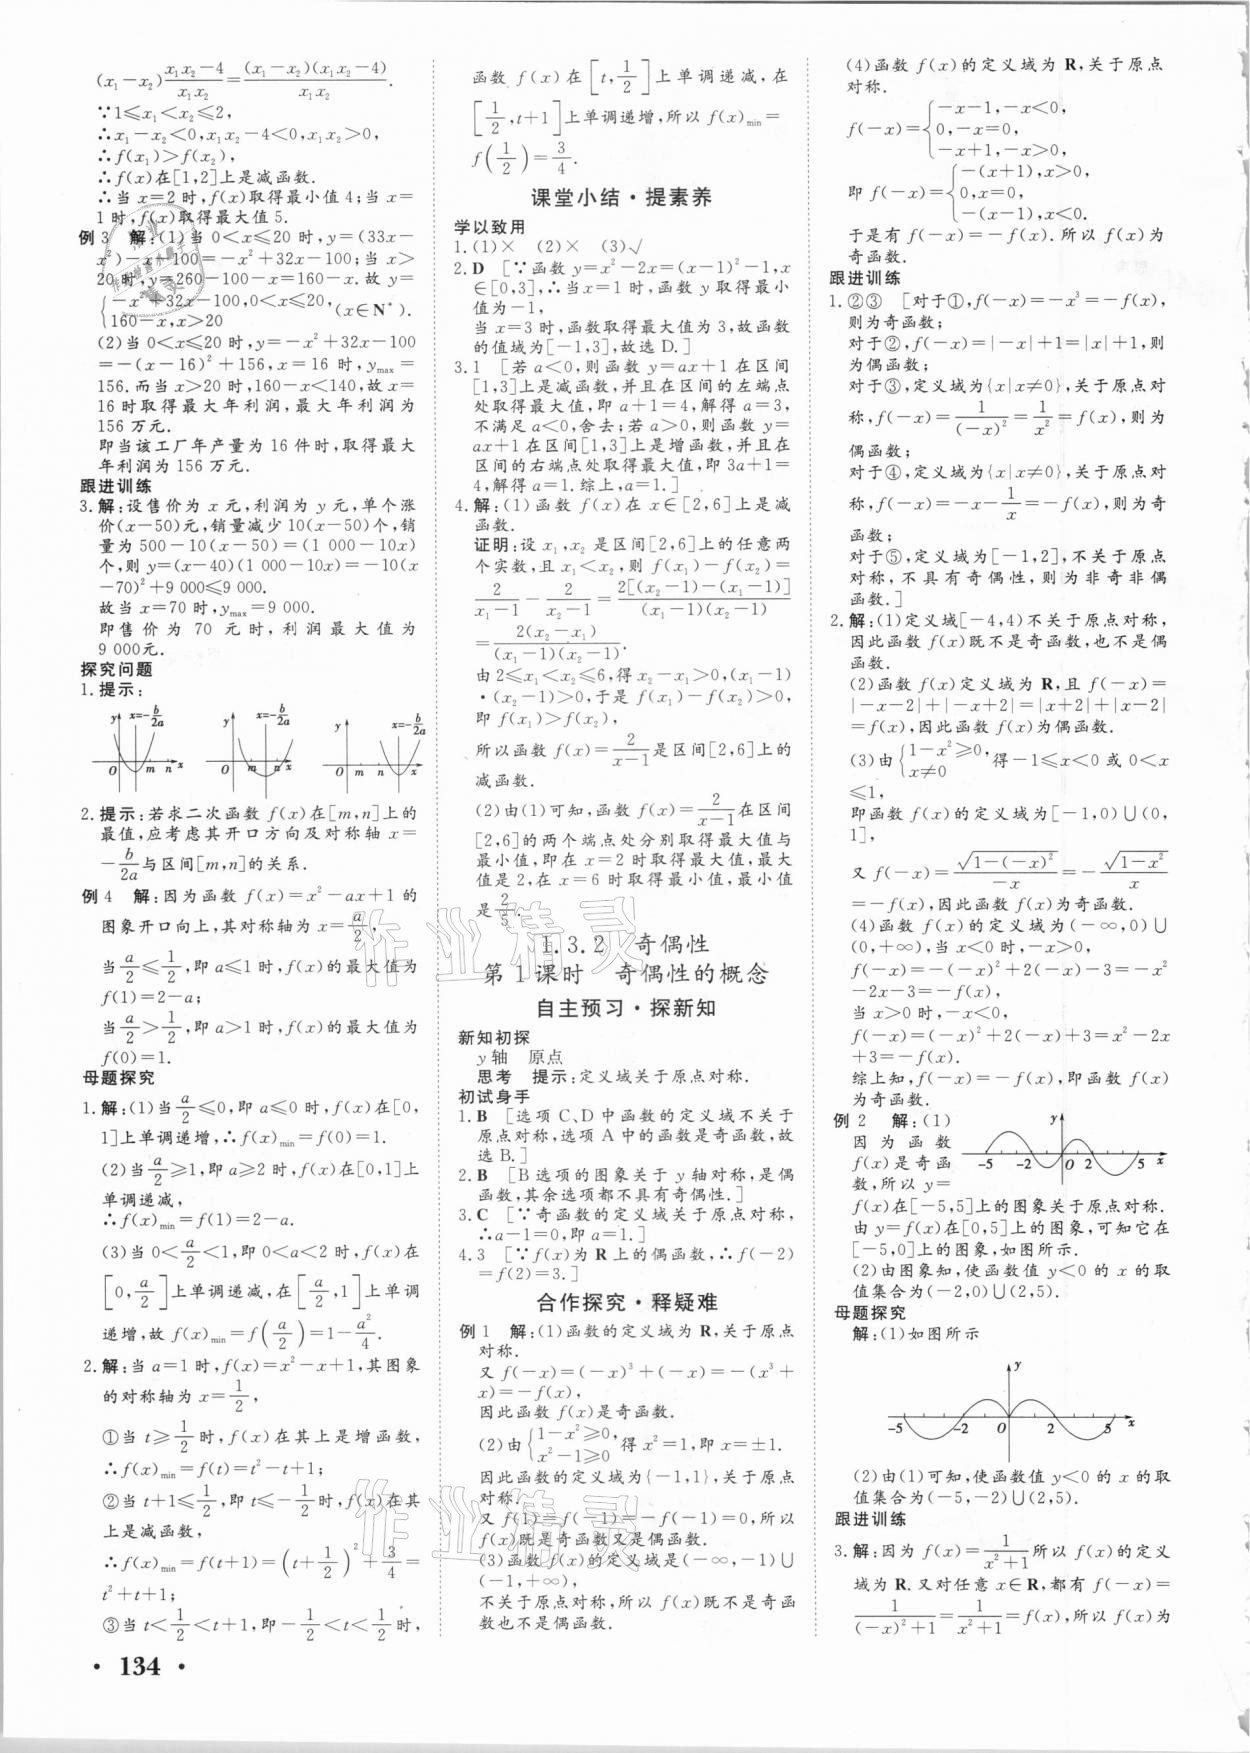 (x₁－x₂)\frac{x₁x₂－4}{x₁x₂}＝\frac{(x₁－x₂)(x₁x₂－4)}{x₁x₂}.
∵1≤x₁＜x₂≤2，
∴x₁－x₂＜0，x₁x₂－4＜0，x₁x₂＞0，
∴f(x₁)＞f(x₂)，
∴f(x)在[1，2]上是减函数.
∴当 x＝2 时，f(x)取得最小值 4；当 x＝
1 时，f(x)取得最大值 5.
例 3 解：(1)当 0＜x≤20 时，y＝(33x－
x²)－x－100＝－x²＋32x－100；当 x＞
20 时，y＝260－100－x＝160－x. 故 y＝
{－x²＋32x－100，0＜x≤20，
160－x，x＞20 (x∈N*).
(2)当 0＜x≤20 时，y＝－x²＋32x－100
＝－(x－16)²＋156，x＝16 时，yₘₐₓ＝
156. 而当 x＞20 时，160－x＜140，故 x＝
16 时取得最大年利润，最大年利润为
156 万元.
即当该工厂年产量为 16 件时，取得最大
年利润为 156 万元.
跟进训练
3. 解：设售价为 x 元，利润为 y 元，单个涨
价(x－50)元，销量减少 10(x－50)个，销
量为 500－10(x－50)＝(1 000－10x)
个，则 y＝(x－40)(1 000－10x)＝－10(x
－70)²＋9 000≤9 000.
故当 x＝70 时，yₘₐₓ＝9 000.
即售价为 70 元时，利润最大值为
9 000元.
探究问题
1. 提示：
x＝－\frac{b}{2a} x＝－\frac{b}{2a} x＝－\frac{b}{2a}
y O m n x y O m n x y O m n x
2. 提示：若求二次函数 f(x)在[m，n]上的
最值，应考虑其开口方向及对称轴 x＝
－\frac{b}{2a}与区间[m，n]的关系.
例 4 解：因为函数 f(x)＝x²－ax＋1 的
图象开口向上，其对称轴为 x＝\frac{a}{2}，
当\frac{a}{2}≤\frac{1}{2}，即 a≤1 时，f(x)的最大值为
f(1)＝2－a；
当\frac{a}{2}＞\frac{1}{2}，即 a＞1 时，f(x)的最大值为
f(0)＝1.
母题探究
1. 解：(1)当\frac{a}{2}≤0，即 a≤0 时，f(x)在[0，
1]上单调递增，∴f(x)ₘᵢₙ＝f(0)＝1.
(2)当\frac{a}{2}≥1，即 a≥2 时，f(x)在[0，1]上
单调递减，
∴f(x)ₘᵢₙ＝f(1)＝2－a.
(3)当 0＜\frac{a}{2}＜1，即 0＜a＜2 时，f(x)在
[0，\frac{a}{2}]上单调递减，在[\frac{a}{2}，1]上单调
递增，故 f(x)ₘᵢₙ＝f(\frac{a}{2})＝1－\frac{a²}{4}.
2. 解：当 a＝1 时，f(x)＝x²－x＋1，其图象
的对称轴为 x＝\frac{1}{2}，
①当 t≥\frac{1}{2}时，f(x)在其上是增函数，
∴f(x)ₘᵢₙ＝f(t)＝t²－t＋1；
②当 t＋1≤\frac{1}{2}，即 t≤－\frac{1}{2}时，f(x)在其
上是减函数，
∴f(x)ₘᵢₙ＝f(t＋1)＝(t＋\frac{1}{2})²＋\frac{3}{4}＝
t²＋t＋1；
③当 t＜\frac{1}{2}＜t＋1，即－\frac{1}{2}＜t＜\frac{1}{2}时，
· 134 ·
函数 f(x)在[t，\frac{1}{2}]上单调递减，在
[\frac{1}{2}，t＋1]上单调递增，所以 f(x)ₘᵢₙ＝
f(\frac{1}{2})＝\frac{3}{4}.
课堂小结·提素养
学以致用
1. (1)× (2)× (3)√
2. D [∵函数 y＝x²－2x＝(x－1)²－1，x
∈[0，3]，∴当 x＝1 时，函数 y 取得最小
值为－1，
当 x＝3 时，函数取得最大值为 3，故函数
的值域为[－1，3]，故选 D.]
3. 1 [若 a＜0，则函数 y＝ax＋1 在区间
[1，3]上是减函数，并且在区间的左端点
处取得最大值，即 a＋1＝4，解得 a＝3，
不满足 a＜0，舍去；若 a＞0，则函数 y＝
ax＋1 在区间[1，3]上是增函数，并且在
区间的右端点处取得最大值，即 3a＋1＝
4，解得 a＝1. 综上，a＝1.]
4. 解：(1)函数 f(x)在 x∈[2，6]上是减
函数.
证明：设 x₁，x₂ 是区间[2，6]上的任意两
个实数，且 x₁＜x₂，则 f(x₁)－f(x₂)＝
\frac{2}{x₁－1}－\frac{2}{x₂－1}＝\frac{2[(x₂－1)－(x₁－1)]}{(x₁－1)(x₂－1)}
＝\frac{2(x₂－x₁)}{(x₁－1)(x₂－1)}.
由 2≤x₁＜x₂≤6，得 x₂－x₁＞0，(x₁－1)
·(x₂－1)＞0，于是 f(x₁)－f(x₂)＞0，
即 f(x₁)＞f(x₂)，
所以函数 f(x)＝\frac{2}{x－1}是区间[2，6]上的
减函数.
(2)由(1)可知，函数 f(x)＝\frac{2}{x－1}在区间
[2，6]的两个端点处分别取得最大值与
最小值，即在 x＝2 时取得最大值，最大
值是 2，在 x＝6 时取得最小值，最小值
是\frac{2}{5}.
1.3.2 奇偶性
第 1 课时 奇偶性的概念
自主预习·探新知
新知初探
y 轴 原点
思考 提示：定义域关于原点对称.
初试身手
1. B [选项 C、D 中函数的定义域不关于
原点对称，选项 A 中的函数是奇函数，故
选 B.]
2. B [B 选项的图象关于 y 轴对称，是偶
函数，其余选项都不具有奇偶性.]
3. C [∵奇函数的定义域关于原点对称，
∴a－1＝0，即 a＝1.]
4. 3 [∵f(x)为 R 上的偶函数，∴f(－2)
＝f(2)＝3.]
合作探究·释疑难
例 1 解：(1)函数的定义域为 R，关于原点
对称.
又 f(－x)＝(－x)³＋(－x)＝－(x³＋
x)＝－f(x)，
因此函数 f(x)是奇函数.
(2)由{1－x²≥0，
x²－1≥0 得 x²＝1，即 x＝±1.
因此函数的定义域为{－1，1}，关于原点
对称.
又 f(1)＝f(－1)＝－f(－1)＝0，所以
f(x)既是奇函数又是偶函数.
(3)函数 f(x)的定义域是(－∞，－1)∪
(－1，＋∞)，
不关于原点对称，所以 f(x)既不是奇函
数也不是偶函数.
(4)函数 f(x)的定义域为 R，关于原点
对称.
f(－x)＝{－x－1，－x＜0，
0，－x＝0，
－x＋1，－x＞0，
即 f(－x)＝{－(x＋1)，x＞0，
0，x＝0，
－(x－1)，x＜0.
于是有 f(－x)＝－f(x). 所以 f(x)为
奇函数.
跟进训练
1. ②③ [对于①，f(－x)＝－x³＝－f(x)，
则为奇函数；
对于②，f(－x)＝|－x|＋1＝|x|＋1，则
为偶函数；
对于③，定义域为{x|x≠0}，关于原点对
称，f(－x)＝\frac{1}{(－x)²}＝\frac{1}{x²}＝f(x)，则为
偶函数；
对于④，定义域为{x|x≠0}，关于原点对
称，f(－x)＝－x－\frac{1}{x}＝－f(x)，则为奇
函数；
对于⑤，定义域为[－1，2]，不关于原点
对称，不具有奇偶性，则为非奇非偶
函数.]
2. 解：(1)定义域[－4，4)不关于原点对称，
因此函数 f(x)既不是奇函数，也不是偶
函数.
(2)函数 f(x)定义域为 R，且 f(－x)＝
|－x－2|＋|－x＋2|＝|x＋2|＋|x－2|
＝f(x)，因此函数 f(x)为偶函数.
(3)由{1－x²≥0，
x≠0 得－1≤x＜0 或 0＜x
≤1，
即函数 f(x)的定义域为[－1，0)∪(0，
1]，
又 f(－x)＝\frac{\sqrt{1－(－x)²}}{－x}＝－\frac{\sqrt{1－x²}}{x}
＝－f(x)，因此函数 f(x)为奇函数.
(4)函数 f(x)的定义域为(－∞，0)∪
(0，＋∞)，当 x＜0 时，－x＞0，
f(－x)＝－(－x)²＋2(－x)－3＝－x²
－2x－3＝－f(x)，
当 x＞0 时，－x＜0，
f(－x)＝(－x)²＋2(－x)＋3＝x²－2x
＋3＝－f(x).
综上知 f(－x)＝－f(x)，即函数 f(x)
为奇函数.
例 2 解：(1)
因为函数
f(x)是奇函
数，所以 y＝
y －5 －2 O 2 5 x
f(x)在[－5，5]上的图象关于原点对称.
由 y＝f(x)在[0，5]上的图象，可知它在
[－5，0]上的图象，如图所示.
(2)由图象知，使函数值 y＜0 的 x 的取
值集合为(－2，0)∪(2，5).
母题探究
解：(1)如图所示
y －5 －2 O 2 5 x
(2)由(1)可知，使函数值 y＜0 的 x 的取
值集合为(－5，－2)∪(2，5).
跟进训练
3. 解：因为 f(x)＝\frac{1}{x²＋1}所以 f(x)的定义
域为 R. 又对任意 x∈R，都有 f(－x)＝
\frac{1}{(－x)²＋1}＝\frac{1}{x²＋1}＝f(x)，所以 f(x)为
作业精灵
作业精灵